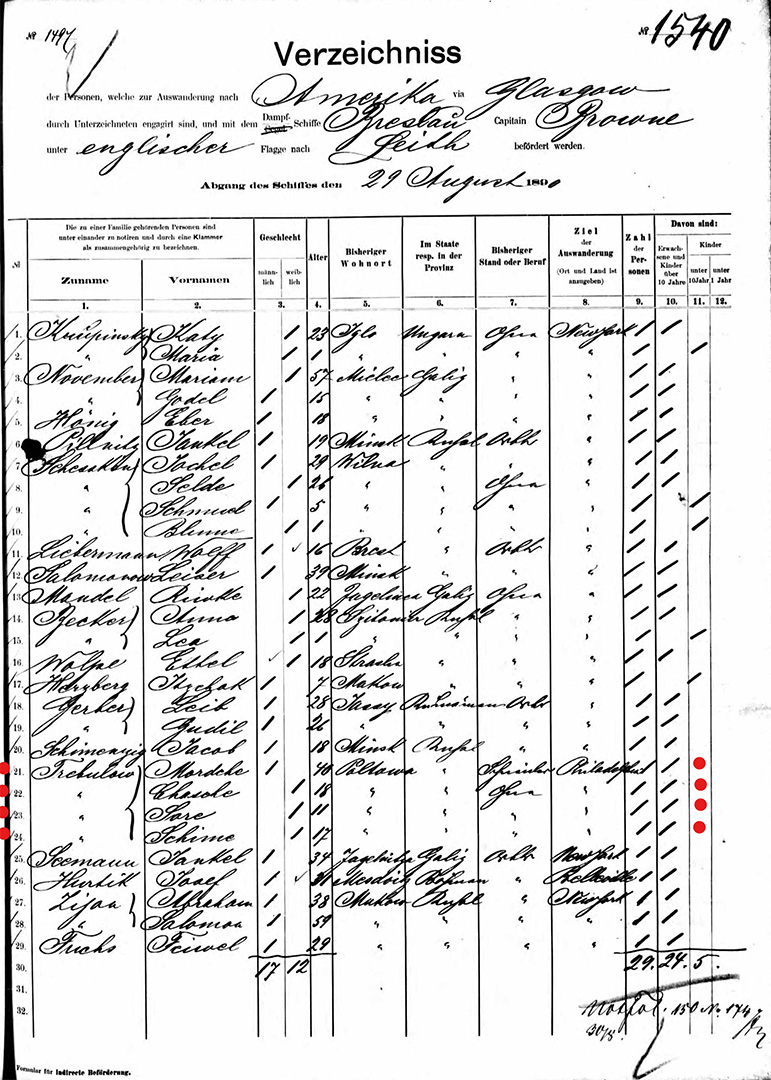 № 1497
№ 1540
Verzeichniss
der Personen, welche zur Auswanderung nach Amerika via Glasgow
durch Unterzeichneten engagirt sind, und mit dem Dampf- Segel- Schiffe Breslau Capitain Browne
unter englischer Flagge nach Leith befördert werden.
Abgang des Schiffes den 29 August 1890
№ Die zu einer Familie gehörenden Personen sind unter einander zu notiren und durch eine Klammer als zusammengehörig zu bezeichnen. Geschlecht Alter Bisheriger Wohnort Im Staate resp. in der Provinz Bisheriger Stand oder Beruf Ziel der Auswanderung (Ort und Land ist anzugeben) Zahl der Personen Davon sind:
Zuname Vornamen männlich weiblich Erwachsene und Kinder über 10 Jahre Kinder unter 10 Jahr unter 1 Jahr
1. 2. 3. 4. 5. 6. 7. 8. 9. 10. 11. 12.
1. Krupinsky Katy 1 23 Iglo Ungarn Ohne New York 1 1
2. " Maria 1 1 " " " " 1 1
3. November Mariam 1 57 Mielec Galiz " " 1 1
4. " Godel 1 15 " " " " 1 1
5. Hönig Eber 1 18 " " " " 1 1
6. Jankel 1 19 Minsk Rußl Arbtr " 1 1
7. Jochel 1 29 Wilna " " " 1 1
8. " Selde 1 26 " " Ohne " 1 1
9. " Schmuel 1 5 " " " " 1 1
10. " Blume 1 1 " " " " 1 1
11. Liebermann Wolff 1 16 Brest " Arbtr " 1 1
12. Leiser 1 39 Minsk " " " 1 1
13. Mandel Riwke 1 22 Galiz Ohne " 1 1
14. Becker Anna 1 28 Rußl " " 1 1
15. " Lea 1 1 " " " " 1 1
16. Wolpe Ethel 1 18 " " " 1 1
17. Herzberg Itzchok 1 7 Makow " " " 1 1
18. Gerber Leib 1 28 Jassy Rumänien Arbtr " 1 1
19. " Gudil 1 26 " " " " 1 1
20. Jacob 1 18 Minsk Rußl " " 1 1
21. Trebulow Mordche 1 40 Poltawa " Philadelphia 1 1
22. " Chasche 1 18 " " Ohne " 1 1
23. " Sore 1 11 " " " " 1 1
24. " Schime 1 17 " " " " 1 1
25. Seemann Jankel 1 34 Galiz Arbtr New York 1 1
26. Hurtik Josef 1 31 Böhmen " Belleville 1 1
27. Abraham 1 38 Makow Rußl " New York 1 1
28. " Salomon 1 59 " " " " 1 1
29. Fuchs Feiwel 1 29 " " " " 1 1
30. 17 12 29. 24. 5.
31.
32.
150 N. 174
30/8
Formular für indirecte Beförderung.